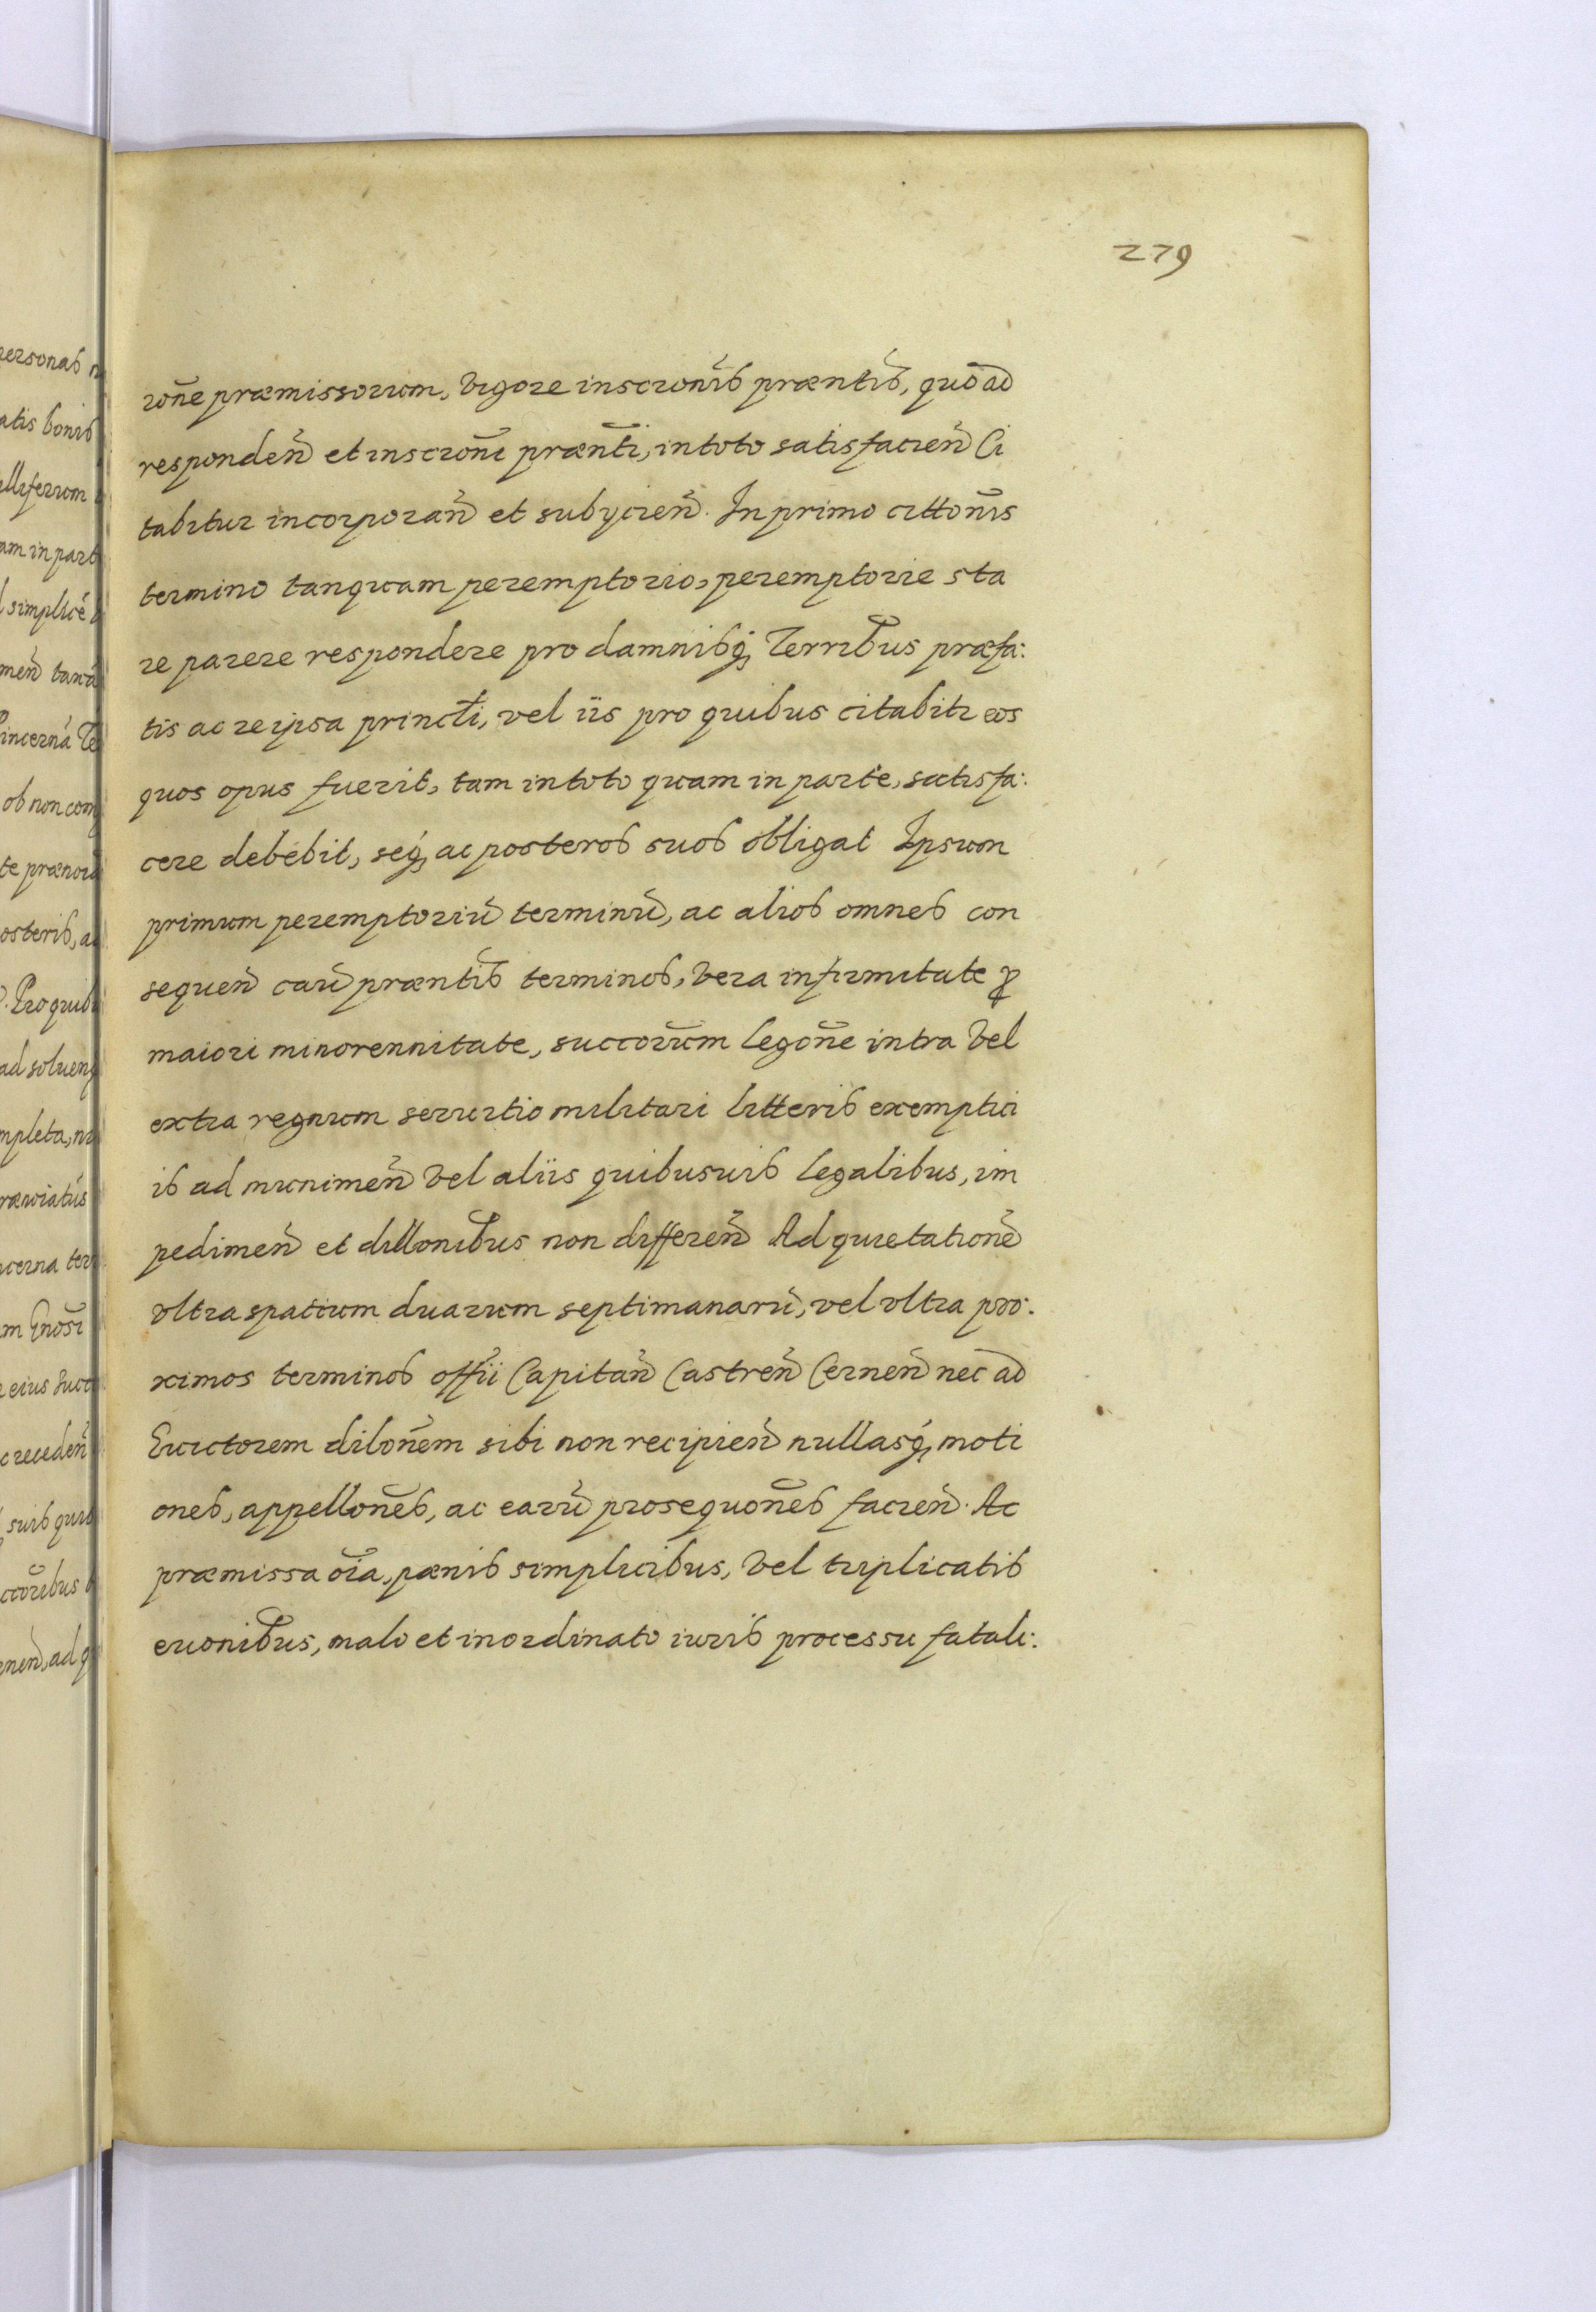 279
rone præmissorum, vigore inscronis præntis, quo ad
responden et inscroni prænti, in toto satisfacien Ci
tabitur incorporan et subycien. In primo cittonis
termino tanquam peremptorio, peremptorie sta
re parere respondere pro damnisq Terribus præfa:
tis ac re ipsa principli, vel iis pro quibus citabitr eos
quos opus fuerit, tam in toto quam in parte, satisfa:
cere debebit, seq ac posteros suos obligat Ipsum
primum peremptoriu terminu, ac alios omnes con
sequen caru præntis terminos, vera infirmitate
maiori minorennitate, succorum legone intra vel
extra regnum servitio militari litteris exemptici
is ad munimen vel aliis quibusuis legalibus, im
pedimen et dillonibus non differen Ad quietatione
vltra spatium duarum septimanaru, vel vltra pro:
ximos terminos offii Capitan Castren Cernen nec ad
Euictorem dilonem sibi non recipien nullasq moti
ones, appellones, ac earu prosequones facien. Ac
præmissa oia, pænis simplicibus, vel triplicatis
euonibus, malo et inordinato iuris processu fatali: